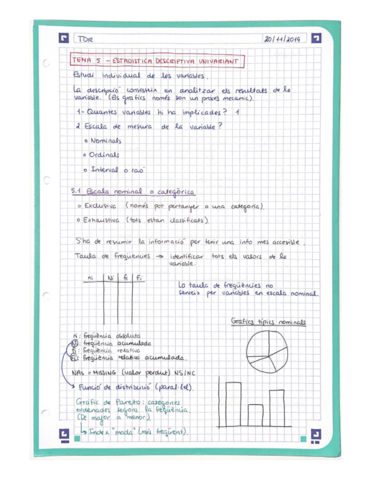 TDR 20/11/2019
TEMA 5 - ESTADISTICA DESCRIPTIVA UNIVARIANT
Estudi individual de les variables.
La descripció consisteix en analitzar els resultats de la
variable. (Els gràfics només son un procés mecànic).
1- Quantes variables hi ha implicades? 1
2 Escala de mesura de la variable?
Nominals
Ordinals
Interval o raó
5.1 Escala nominal o categòrica
Exclusiva (només pot pertanyer a una categoria).
Exhaustiva (tots estan classificats).
S'ha de resumir la informació per tenir una info mes accesible.
Taula de freqüències → identificar tots els valors de la
variable.
ni Ni fi Fi
La taula de freqüències no
serveix per variables en escala nominal.
Gràfics típics nominals
ni: freqüència absoluta
Ni: freqüència acumulada
fi: freqüència relativa
Fi: freqüència relativa acumulada.
NAs = MISSING (valor perdut) NS/NC
Funció de distribució (paral·lel).
Gràfic de Pareto: categories
ordenades segons la freqüència.
(De major a menor)
↳ Index "moda" (més freqüent).